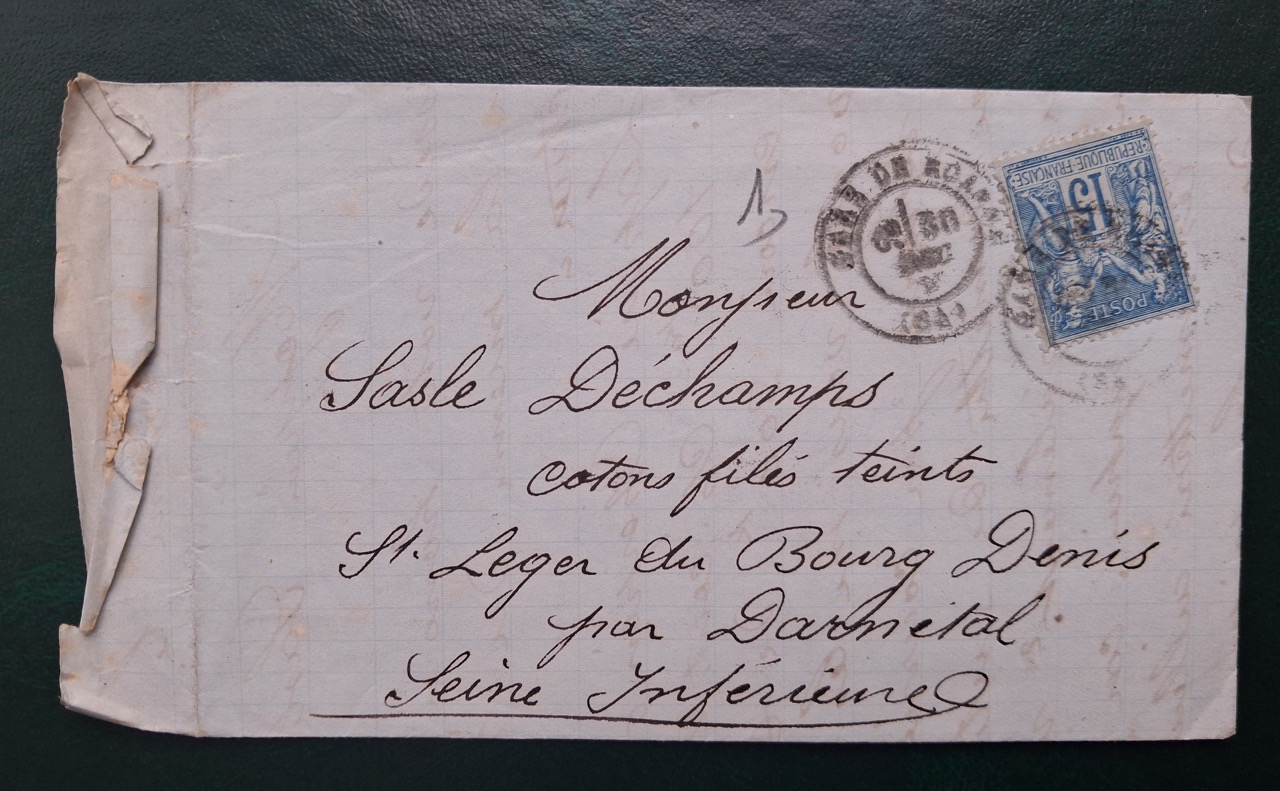 GARE DE ROANNE
30
(84)
REPUBLIQUE FRANÇAISE
15
POSTE
Monsieur
Sasle Déchamps
cotons filés teints
St. Leger du Bourg Denis
par Darnétal
Seine Inférieure